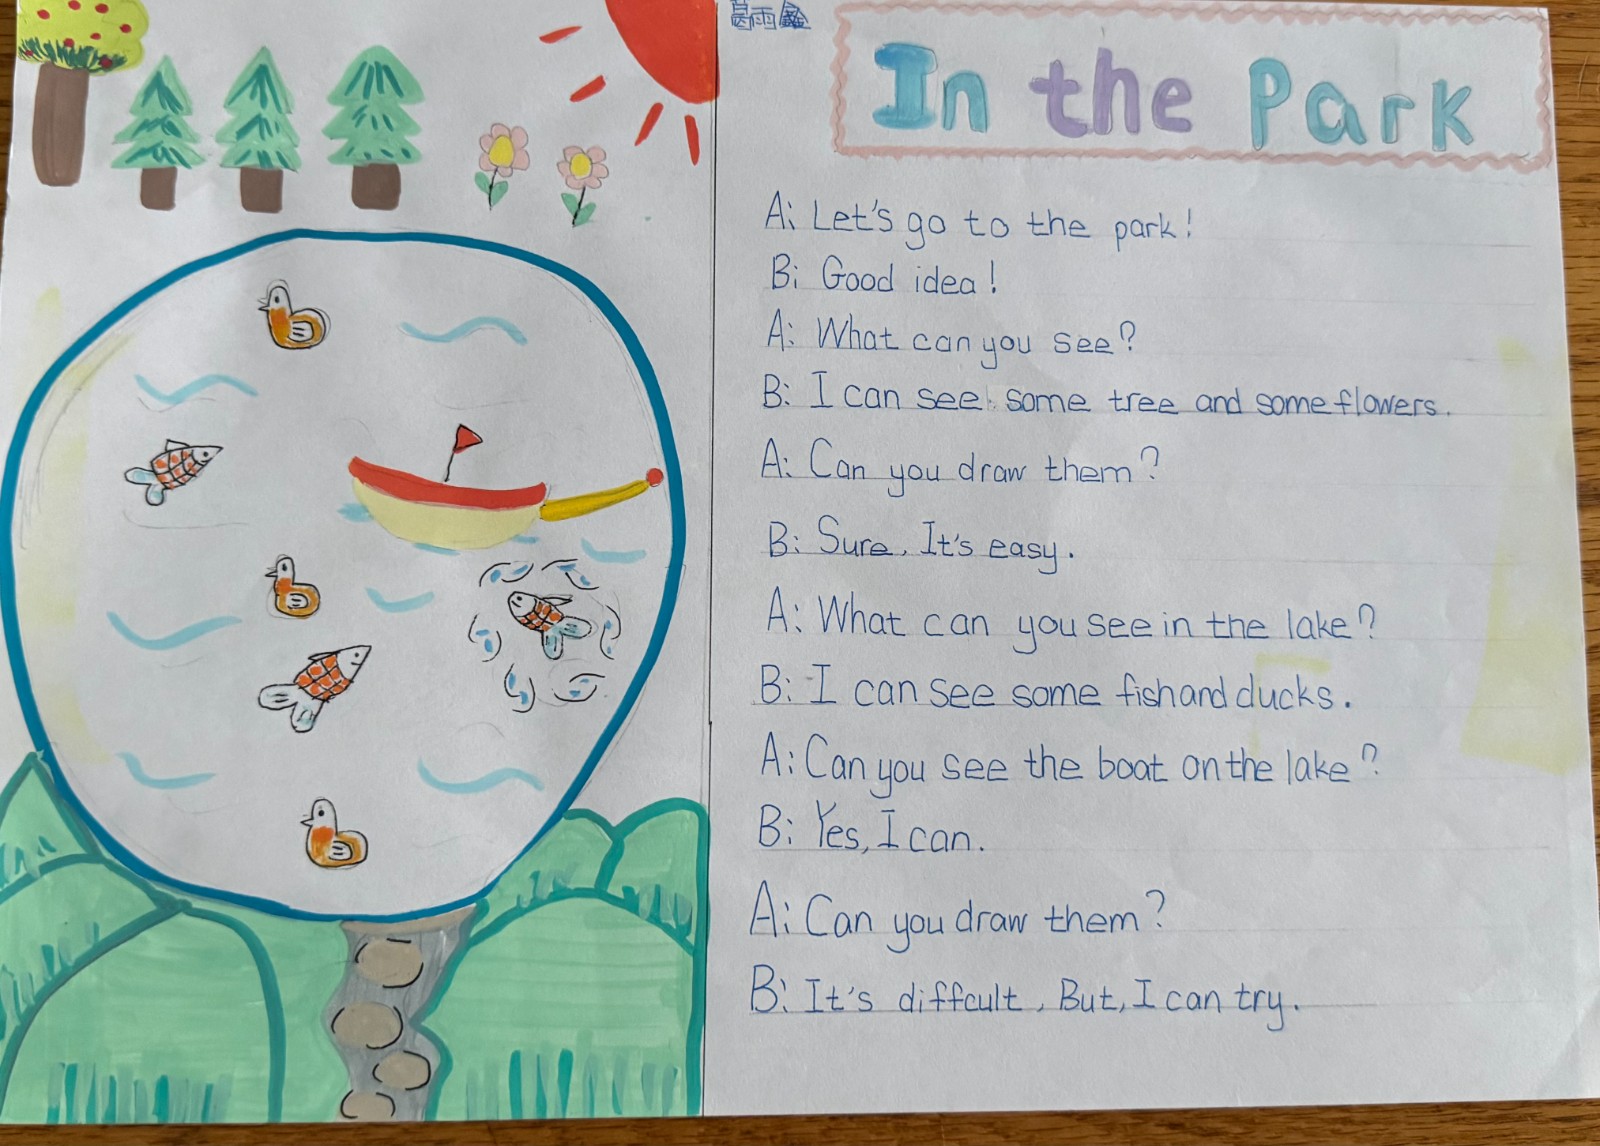 葛雨鑫
In the Park
A: Let's go to the park!
B: Good idea!
A: What can you see?
B: I can see some tree and some flowers.
A: Can you draw them?
B: Sure. It's easy.
A: What can you see in the lake?
B: I can see some fish and ducks.
A: Can you see the boat on the lake?
B: Yes, I can.
A: Can you draw them?
B: It's diffcult, But, I can try.